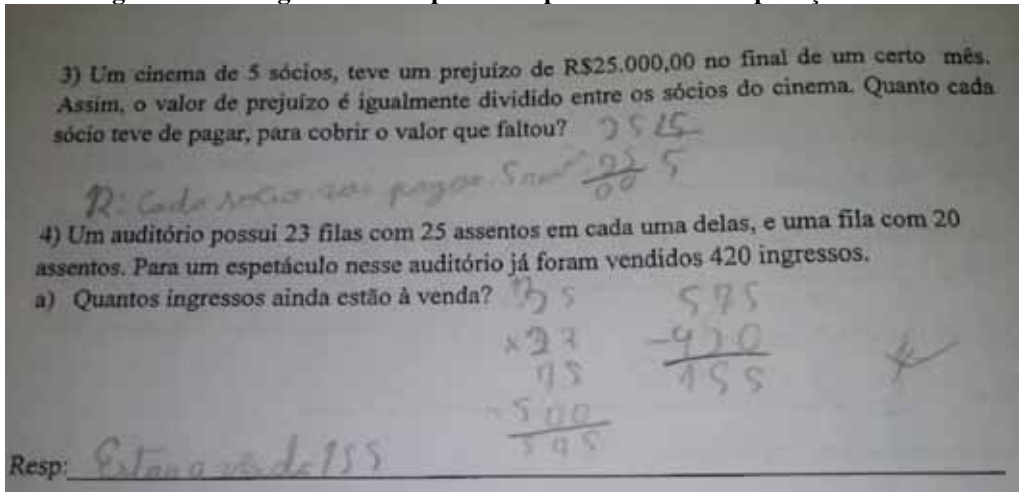 3) Um cinema de 5 sócios, teve um prejuízo de R$25.000,00 no final de um certo mês.
Assim, o valor de prejuízo é igualmente dividido entre os sócios do cinema. Quanto cada
sócio teve de pagar, para cobrir o valor que faltou? 25 5
R: Cada socio vai pagar 5 25 5
00
4) Um auditório possui 23 filas com 25 assentos em cada uma delas, e uma fila com 20
assentos. Para um espetáculo nesse auditório já foram vendidos 420 ingressos.
a) Quantos ingressos ainda estão à venda? 25 575
x23 -420
75 155
500
575
Resp: Estan a venda 155